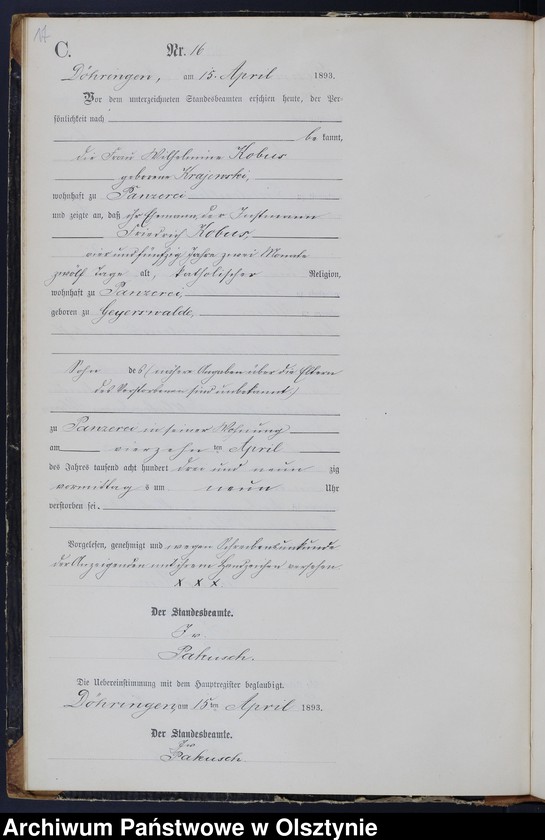 17
C.
Nr. 16
Döhringen, am 15. April 1893.
Vor dem unterzeichneten Standesbeamten erschien heute, der Per-
sönlichkeit nach
be kannt,
die Frau Wilhelmine Kobus
geborene Krajewski,
wohnhaft zu Panzerei
und zeigte an, daß ihr Ehemann, der Instmann
Friedrich Kobus,
vierundfünfzig Jahre zwei Monate
zwölf Tage alt, katholischer Religion,
wohnhaft zu Panzerei,
geboren zu Geyerswalde,
Sohn des (nähere Angaben über die Eltern
des Verstorbenen sind unbekannt)
zu Panzerei in seiner Wohnung
am vierzehn ten April
des Jahres tausend acht hundert drei und neun zig
vormittag s um neun Uhr
verstorben sei.
Vorgelesen, genehmigt und wegen Schreibensunkunde
der Anzeigenden mit ihrem Handzeichen versehen.
x x x.
Der Standesbeamte.
J v.
Pakusch.
Die Uebereinstimmung mit dem Hauptregister beglaubigt.
Döhringen, am 15ten April 1893.
Der Standesbeamte.
J v
Pakusch.
Archiwum Państwowe w Olsztynie